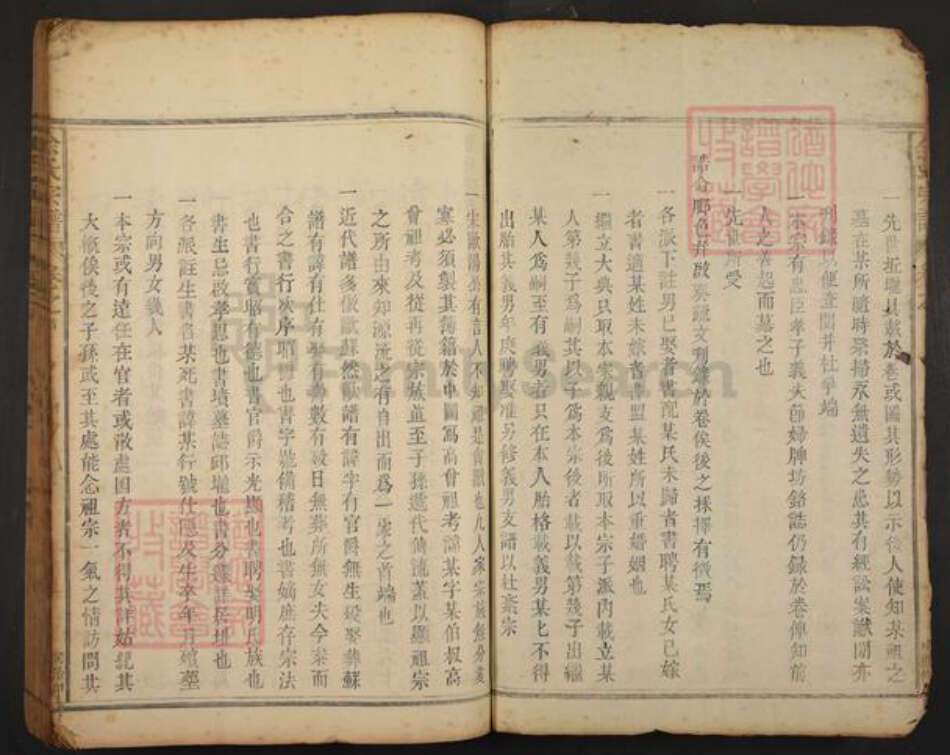 一先世坵壠具載於卷或圖其形勢以示後人使知某祖之
墓在某所隨時祭掃永無遺失之患其有經訟案讞間亦
刊錄以便查閱井杜爭端
一本宗有忠臣孝子義夫節婦牌坊銘誌仍錄於卷俾知前
人之 著起而慕之也
一先世所受
誥命 奏疏文刊錄於卷俟後之採擇有徵焉
一各派下註男已娶者書配某氏未歸者書聘某氏女已嫁
者書適某姓未嫁者書盟某姓所以重婚姻也
一繼立大典只取本家親支為後所取本宗子派內載立某
人第幾子為嗣其以子為本宗後者載以第幾子出繼
某人為嗣至有義男者只在本人胎格載義男某七不得
出胎其義男年庚聘娶准另修義男支譜以杜紊宗
一宋歐陽公有言人不知 是 也凡人家宗族無分
寒必須製其簿籍於中圖寫高曾祖考諱某字某伯叔高
曾祖考及從再從宗族並至于孫遞代傳流蓋以繼祖宗
之所由來知源流之有自出而為一家之首端也
一近代譜多倣歐蘇然歐譜有諱字有官爵無生歿娶葬蘇
譜有諱有仕有娶有壽數有歿日無葬所無女夫今案而
合之書行次序昭穆也書字號備稽考也書嫡庶存宗法
也書行實昭有德也書官爵示光顯也書聘娶明氏族也
書生忌敦孝思也書墳墓誌邱壠也書分錄詳居址也
一各派註生書名某死書諱某行號仕隱及生卒年月婚塋
方向男女幾人
一本宗或有遠任在官者或散處四方者不得其詳姑記其
大概俟後之子孫或至其處能念祖宗一氣之情訪問其
FamilySearch